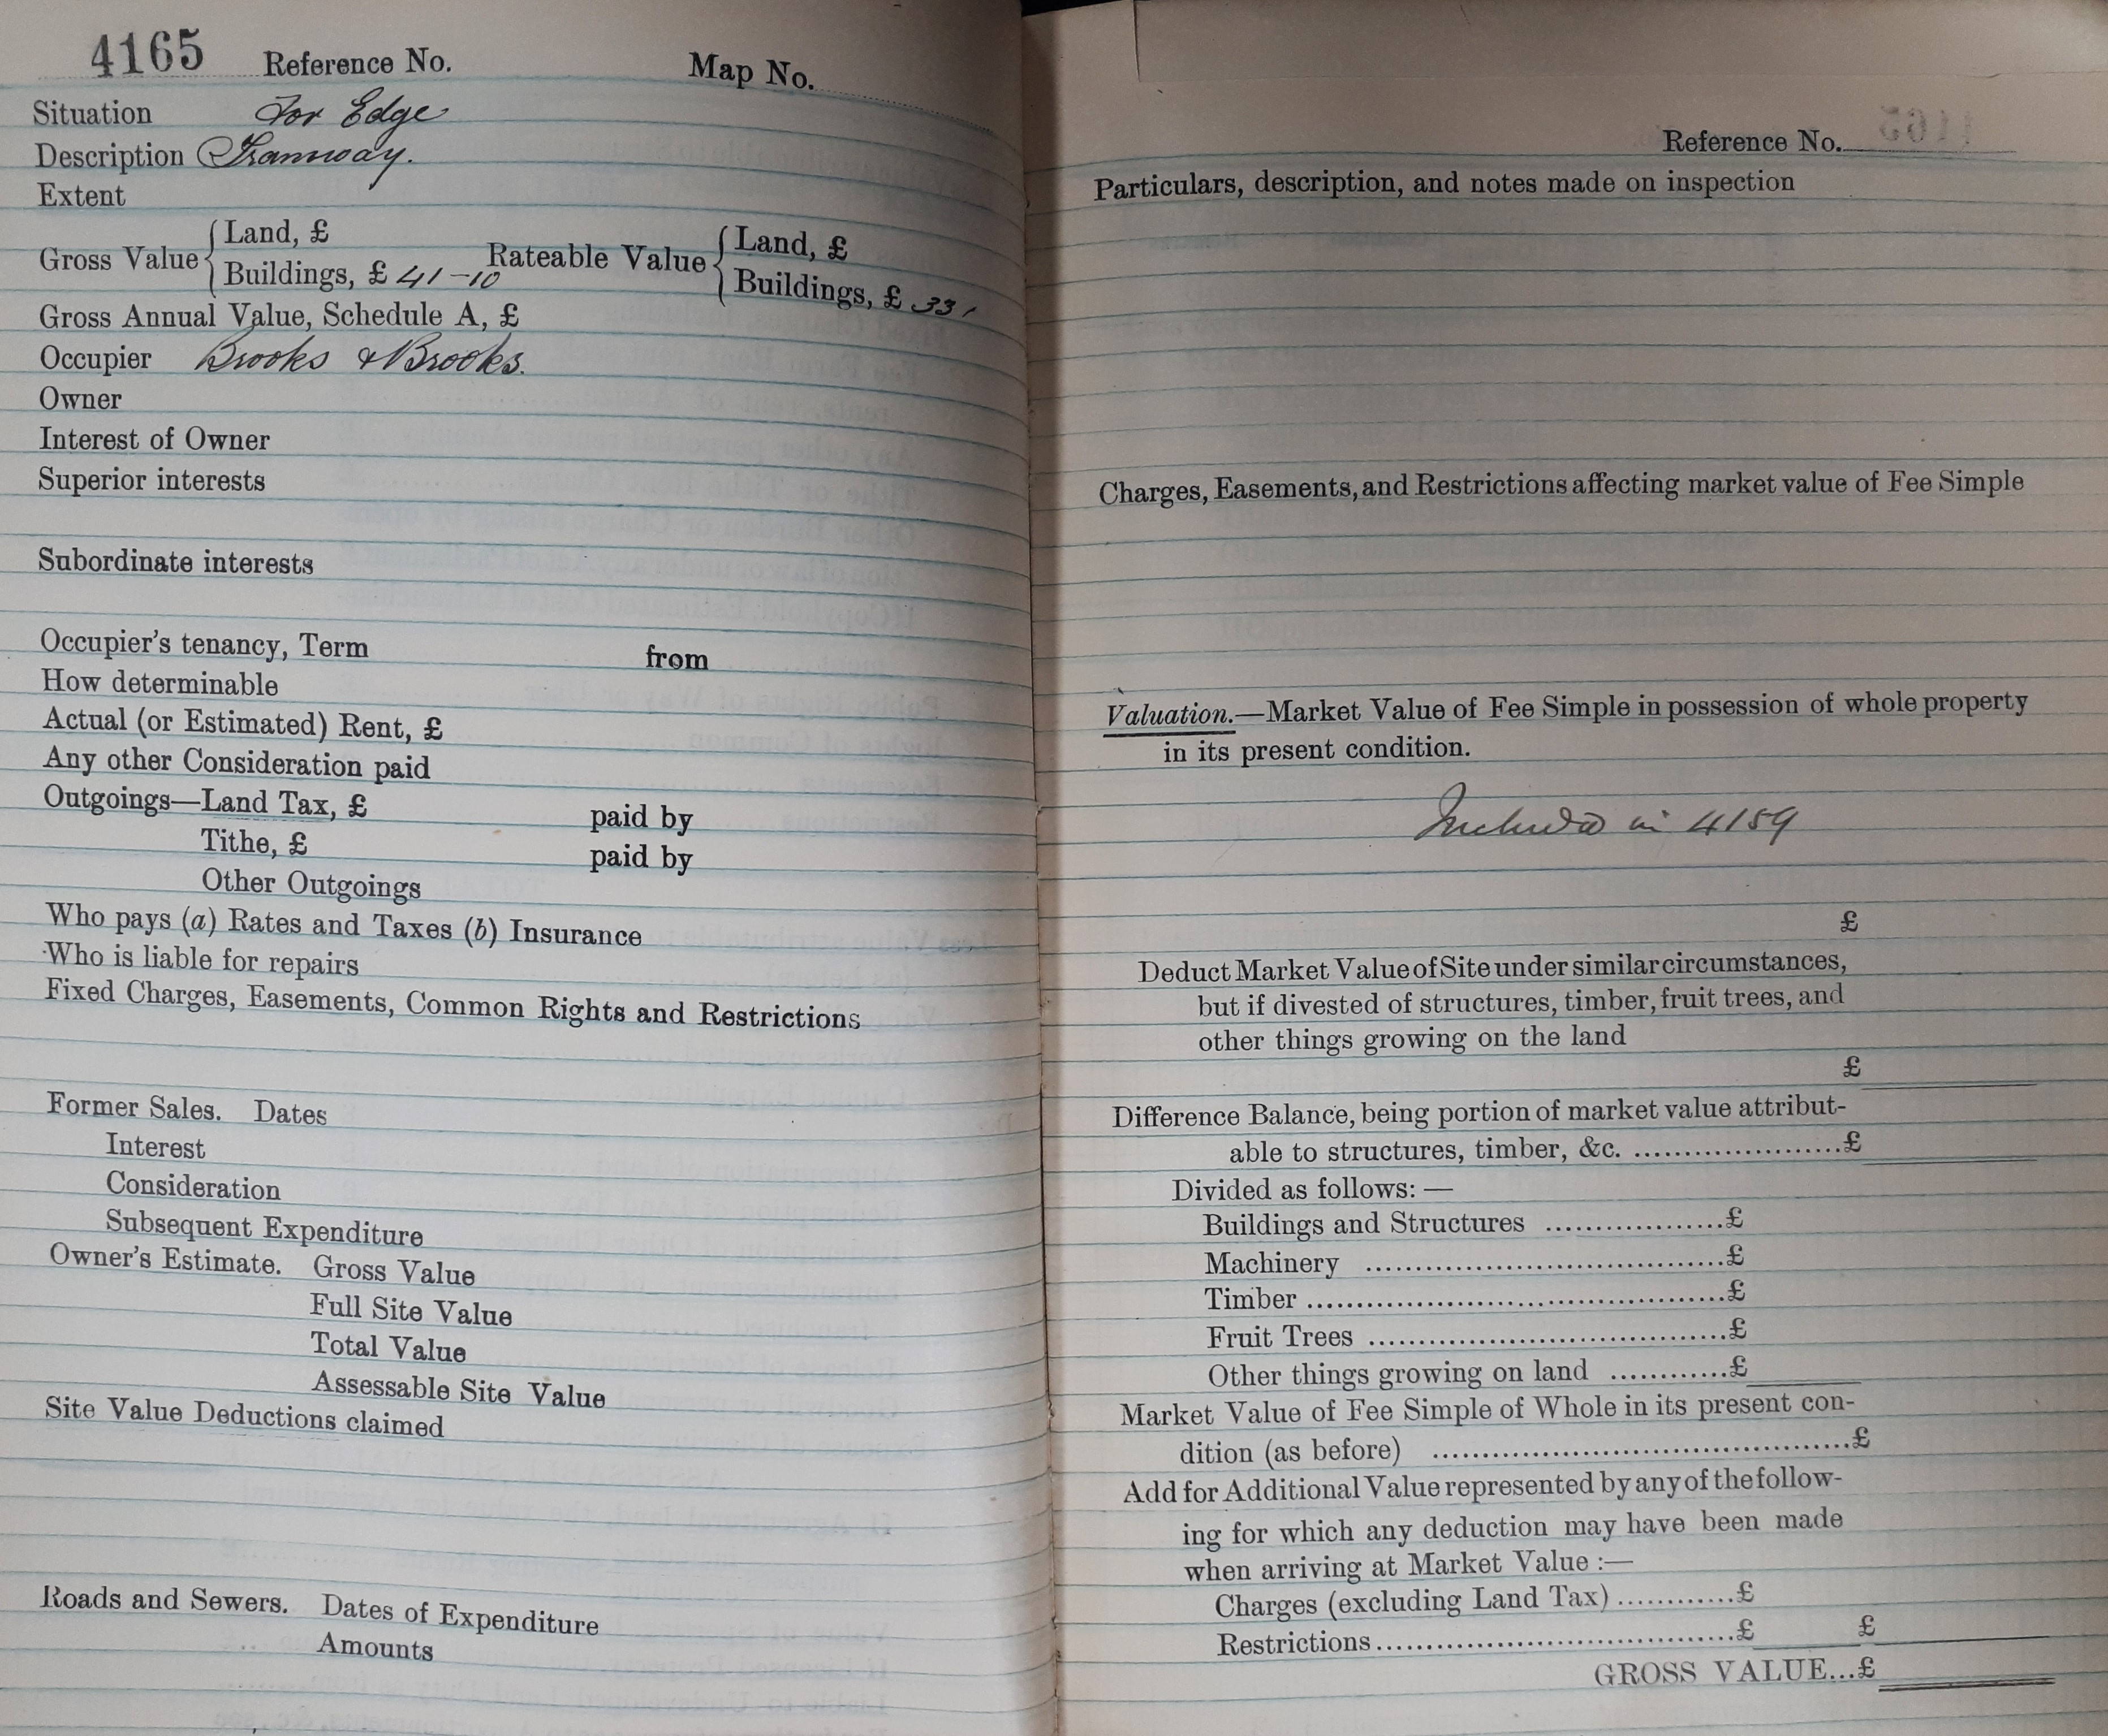 4165 Reference No. Map No.
Situation Tor Edge
Description Tramway.
Extent
Gross Value { Land, £ Rateable Value { Land, £
Buildings, £ 41-10 Buildings, £ 33
Gross Annual Value, Schedule A, £
Occupier Brooks & Brooks.
Owner
Interest of Owner
Superior interests
Subordinate interests
Occupier's tenancy, Term from
How determinable
Actual (or Estimated) Rent, £
Any other Consideration paid
Outgoings—Land Tax, £ paid by
Tithe, £ paid by
Other Outgoings
Who pays (a) Rates and Taxes (b) Insurance
Who is liable for repairs
Fixed Charges, Easements, Common Rights and Restrictions
Former Sales. Dates
Interest
Consideration
Subsequent Expenditure
Owner's Estimate. Gross Value
Full Site Value
Total Value
Assessable Site Value
Site Value Deductions claimed
Roads and Sewers. Dates of Expenditure
Amounts
Reference No.
Particulars, description, and notes made on inspection
Charges, Easements, and Restrictions affecting market value of Fee Simple
Valuation.—Market Value of Fee Simple in possession of whole property
in its present condition.
Included in 4159
£
Deduct Market Value of Site under similar circumstances,
but if divested of structures, timber, fruit trees, and
other things growing on the land
£
Difference Balance, being portion of market value attribut-
able to structures, timber, &c. ....................£
Divided as follows: —
Buildings and Structures ..................£
Machinery ....................................£
Timber ..........................................£
Fruit Trees ....................................£
Other things growing on land ............£
Market Value of Fee Simple of Whole in its present con-
dition (as before) ..........................................£
Add for Additional Value represented by any of the follow-
ing for which any deduction may have been made
when arriving at Market Value :—
Charges (excluding Land Tax) ............£
Restrictions....................................£ £
GROSS VALUE...£